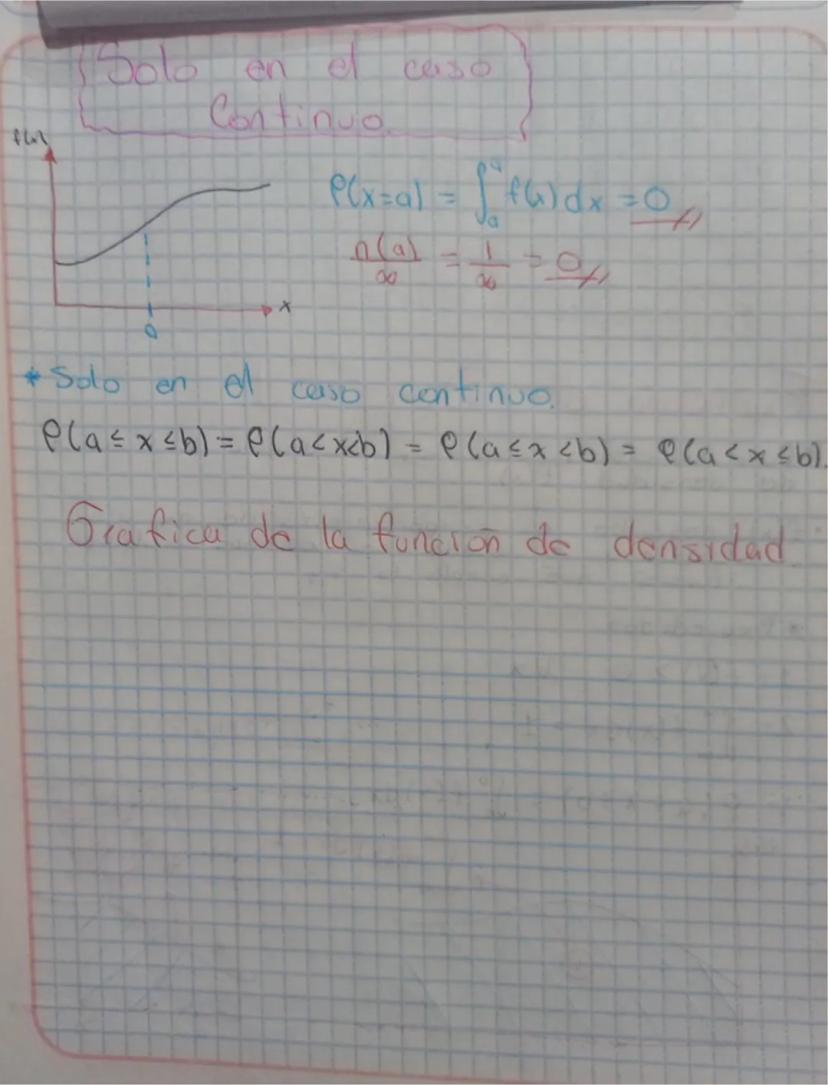 Solo en el caso
Continuo
f(x)
P(x=a) = ∫ₐᵃ f(x) dx = 0
n(a)/∞ = 1/∞ = 0
x
a
* Solo en el caso continuo.
P(a ≤ x ≤ b) = P(a < x < b) = P(a ≤ x < b) = P(a < x ≤ b).
Grafica de la función de densidad